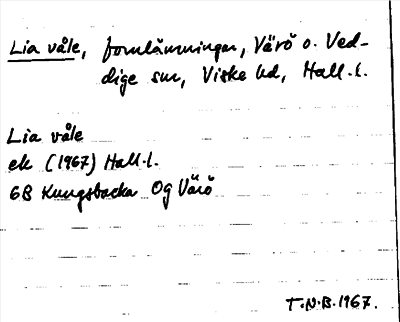 Lia våle, fornlämningar, Värö o. Ved-
dige snr, Viske hd, Hall. l.
Lia våle
ek (1967) Hall. l.
6B Kungsbacka 0g Värö
T.N.B. 1967.